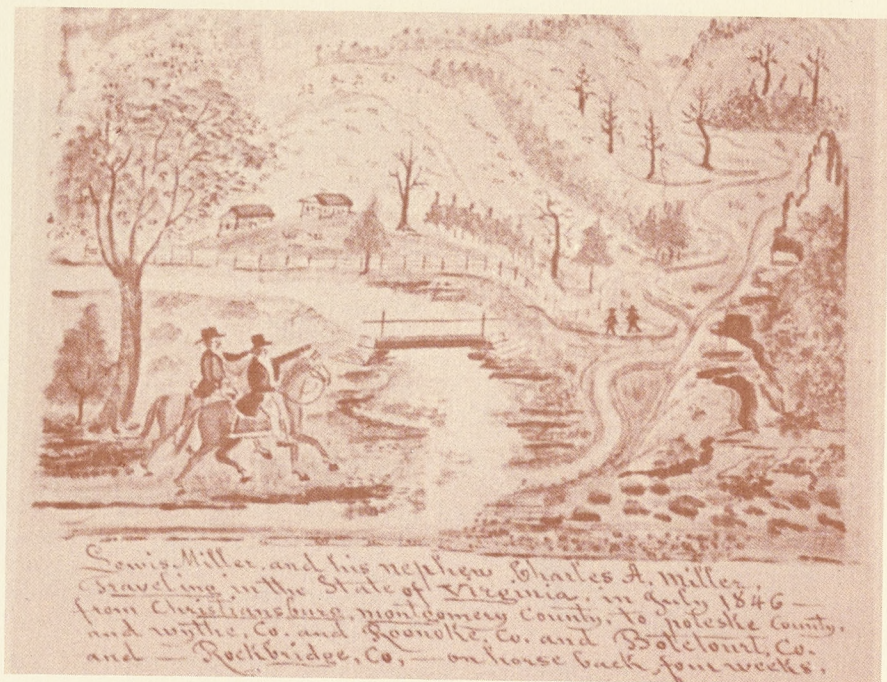 Lewis Miller, and his nephew Charles A. Miller,
Traveling in the State of Virginia, in July 1846 —
from Christiansburg, montgomery County, to poleske County,
and wythe, Co. and Roonoke, Co. and Botetourt, Co.
and — Rockbridge, Co, — on horse back four weeks.